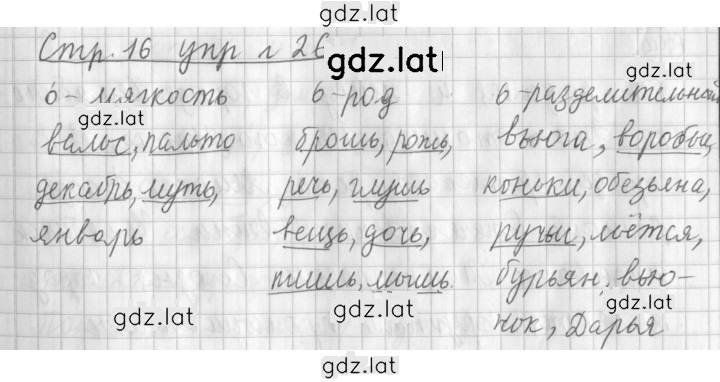 gdz.lat
Стр. 16 упр № 26
gdz.lat
gdz.lat
ь - мягкость ь - род ь - разделительной
gdz.lat
вальс, пальто брошь, рожь, вьюга, воробьи,
декабрь, муть, речь, глушь коньки, обезьяна,
январь вещь, дочь, ручьи, льётся,
тишь, мышь. бурьян, вью-
gdz.lat gdz.lat gdz.lat
нок, Дарья
gdz.lat